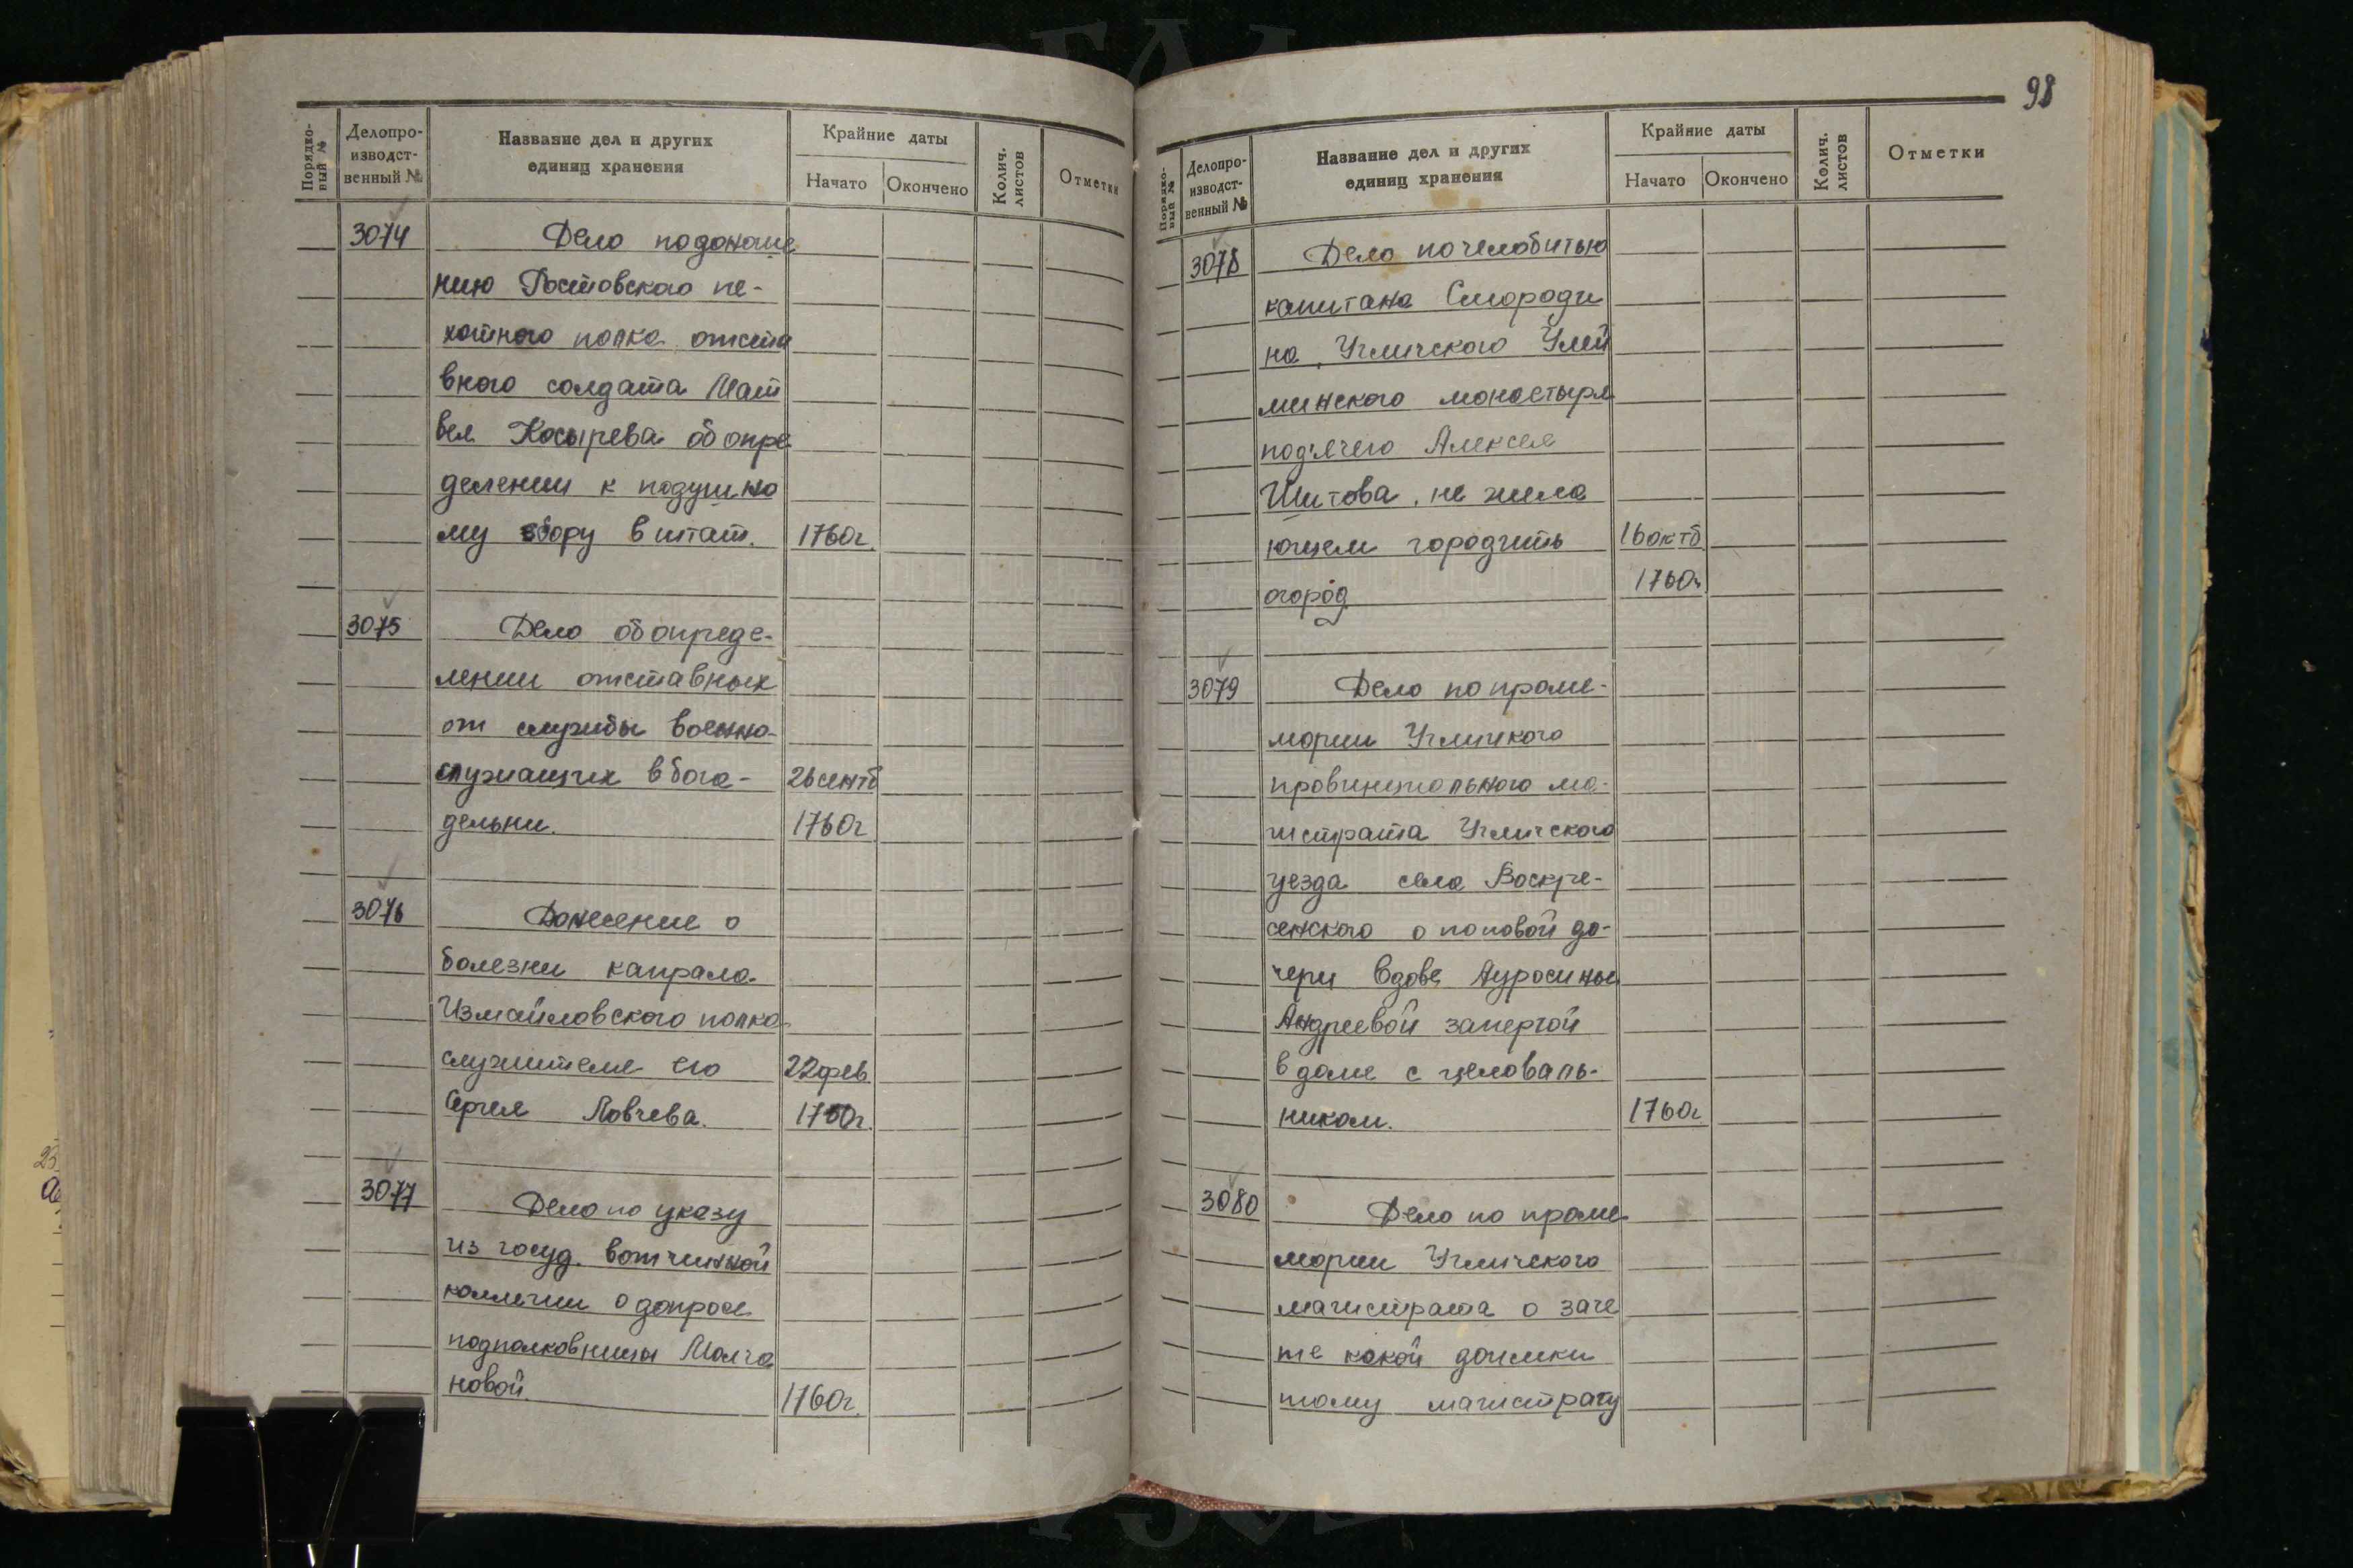 Порядко-
вый №
Делопро-
изводст-
венный №
Название дел и других
единиц хранения
Крайние даты
Начато
Окончено
Колич.
листов
Отметки
3074
Дело по доноше
нию Ростовского пе-
хотного полка отста
вного солдата Мат
вея Косырева об опре
делении к подушно
му сбору в штат. 1760г.
3075
Дело об опреде-
лении отставных
от службы военно-
служащих в бога- 26 сентб
дельни. 1760г
3076
Донесение о
болезни капрала
Измайловского полка
служителе его 22 фев
Сергея Ловчева. 1760г.
3077
Дело по указу
из госуд. вотчинной
коллегии о допросе
подполковницы Молча
новой. 1760г.
98
Порядко-
вый №
Делопро-
изводст-
венный №
Название дел и других
единиц хранения
Крайние даты
Начато
Окончено
Колич.
листов
Отметки
3078
Дело по челобитью
капитана Смороди
на, Угличского Улей
минского монастыря
под'ячего Алексея
Шитова, не жела
ющем городить 16 октб
огород 1760г
3079
Дело по проме-
мории Угличкого
провинциального ма-
гистрата Угличского
уезда села Воскре-
сенского о поповой до-
чери вдове Ауросиньи
Андреевой запертой
в доме с целоваль-
ником. 1760г
3080
Дело по проме
мории Угличского
магистрата о заче
те какой доимки
тому магистрату